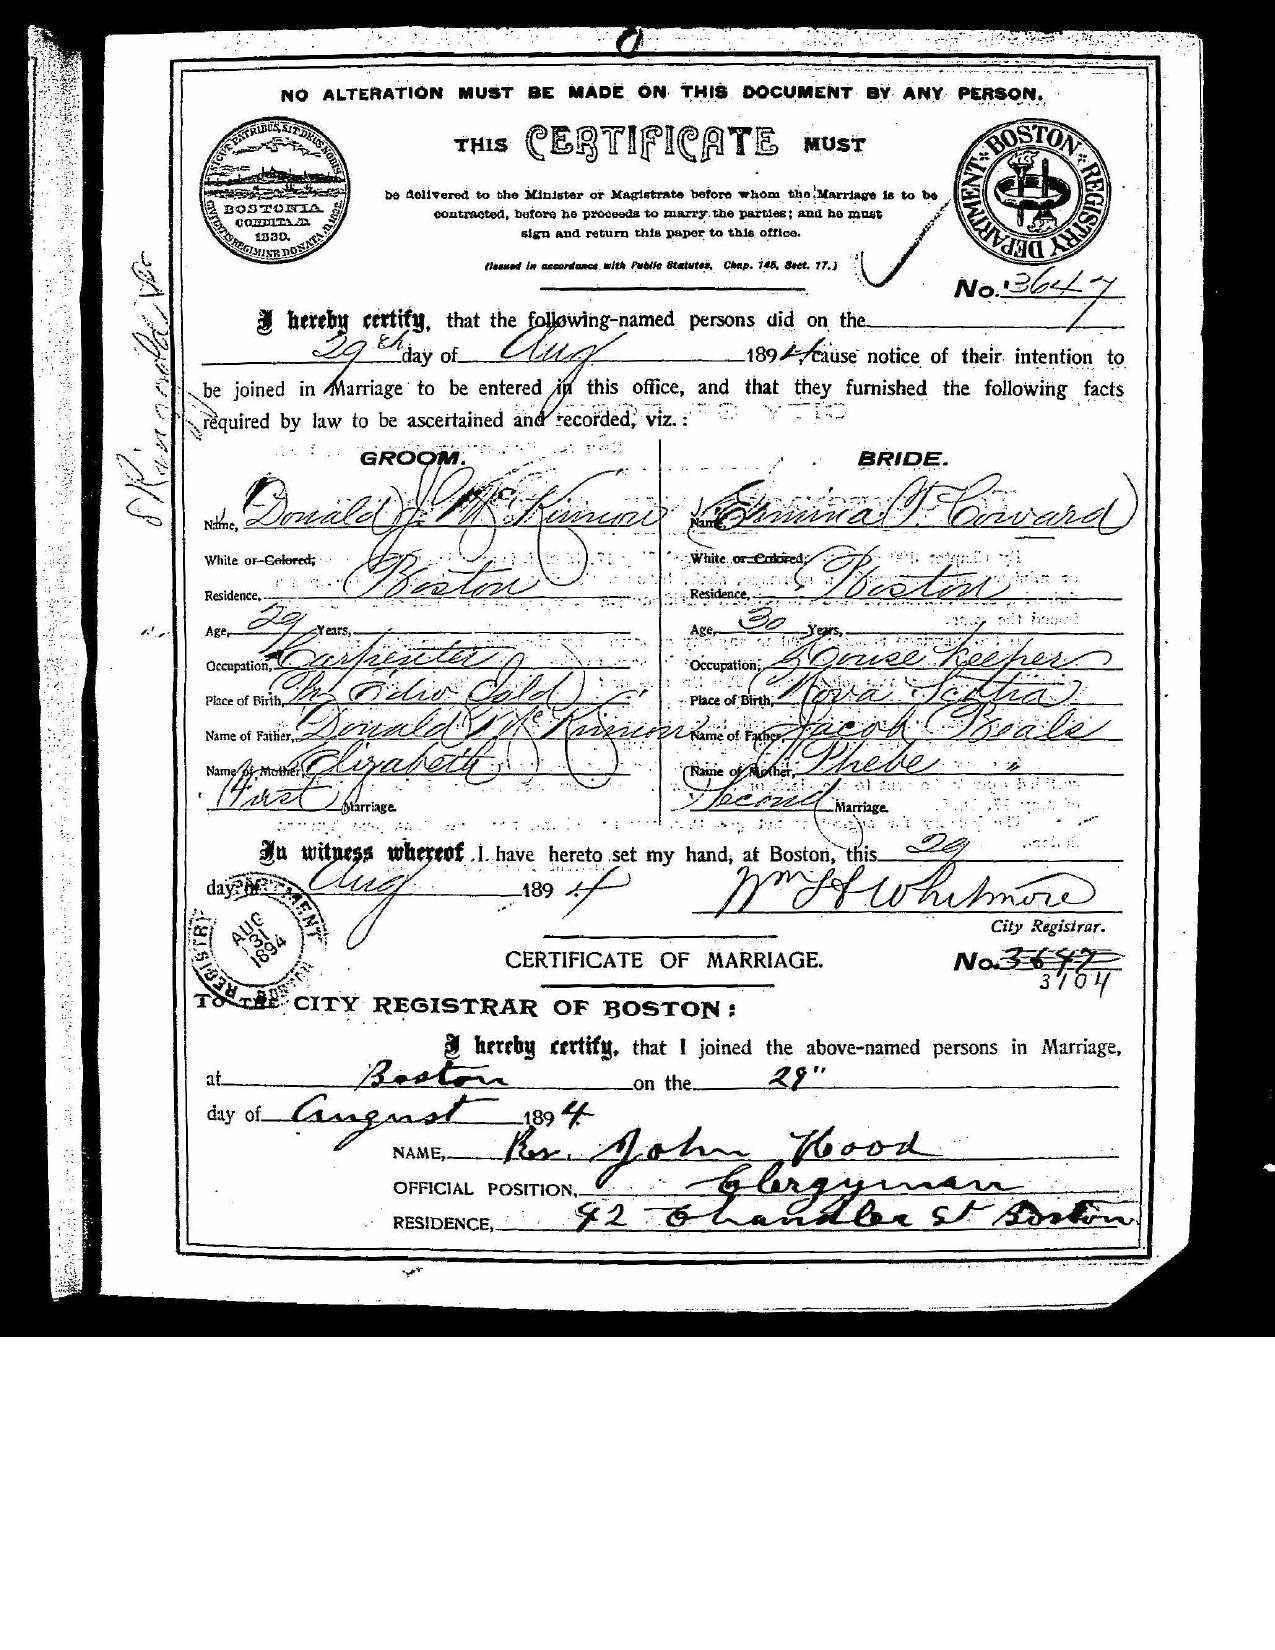 NO ALTERATION MUST BE MADE ON THIS DOCUMENT BY ANY PERSON.
THIS CERTIFICATE MUST
be delivered to the Minister or Magistrate before whom the Marriage is to be
contracted, before he proceeds to marry the parties; and he must
sign and return this paper to this office.
(Issued in accordance with Public Statutes, Chap. 145, Sect. 17.)
SICUT PATRIBUS, SIT DEUS NOBIS
BOSTONIA
CONDITA A.D.
1630.
CIVITATIS REGIMINE DONATA A.D. 1822.
BOSTON REGISTRY DEPARTMENT
No. 3647
I hereby certify, that the following-named persons did on the
29th day of Aug 1894 cause notice of their intention to
be joined in Marriage to be entered in this office, and that they furnished the following facts
required by law to be ascertained and recorded, viz.:
GROOM.
Name, Donald J. McKinnon
White or Colored;
Residence, Boston
Age, 29 Years,
Occupation, Carpenter
Place of Birth,
Name of Father, Donald McKinnon
Name of Mother, Elizabeth
First Marriage.
BRIDE.
Name, Ermina F. Coward
White or Colored;
Residence, Boston
Age, 30 Years,
Occupation, House Keeper
Place of Birth, Nova Scotia
Name of Father, Jacob Beals
Name of Mother, Phebe "
Second Marriage.
In witness whereof I have hereto set my hand, at Boston, this 29
day of Aug 1894 Wm H Whitmore
City Registrar.
REGISTRY DEPARTMENT
AUG
31
1894
BOSTON
CERTIFICATE OF MARRIAGE. No. 3647
3104
TO THE CITY REGISTRAR OF BOSTON:
I hereby certify, that I joined the above-named persons in Marriage,
at Boston on the 29"
day of August 1894
NAME, Rev. John Hood
OFFICIAL POSITION, Clergyman
RESIDENCE, 42 Chandler St Boston